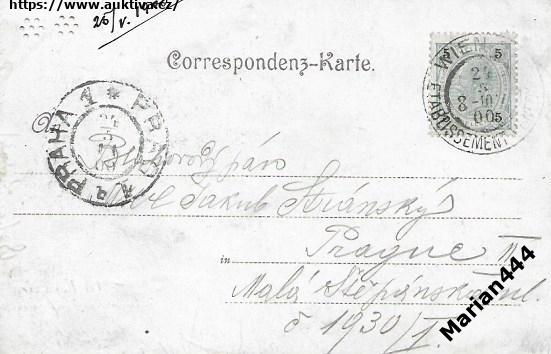 https://www.auktiva.cz/
26/V. 1900
Correspondenz-Karte.
WIEN
ETABLISSEMENT
24
5
8-10
00
5
5
PRAHA 1 * PRAG
pán
Jakub Stránský
in Prague II
Malá Štěpánská ul.
č 1930/I.
Marian444